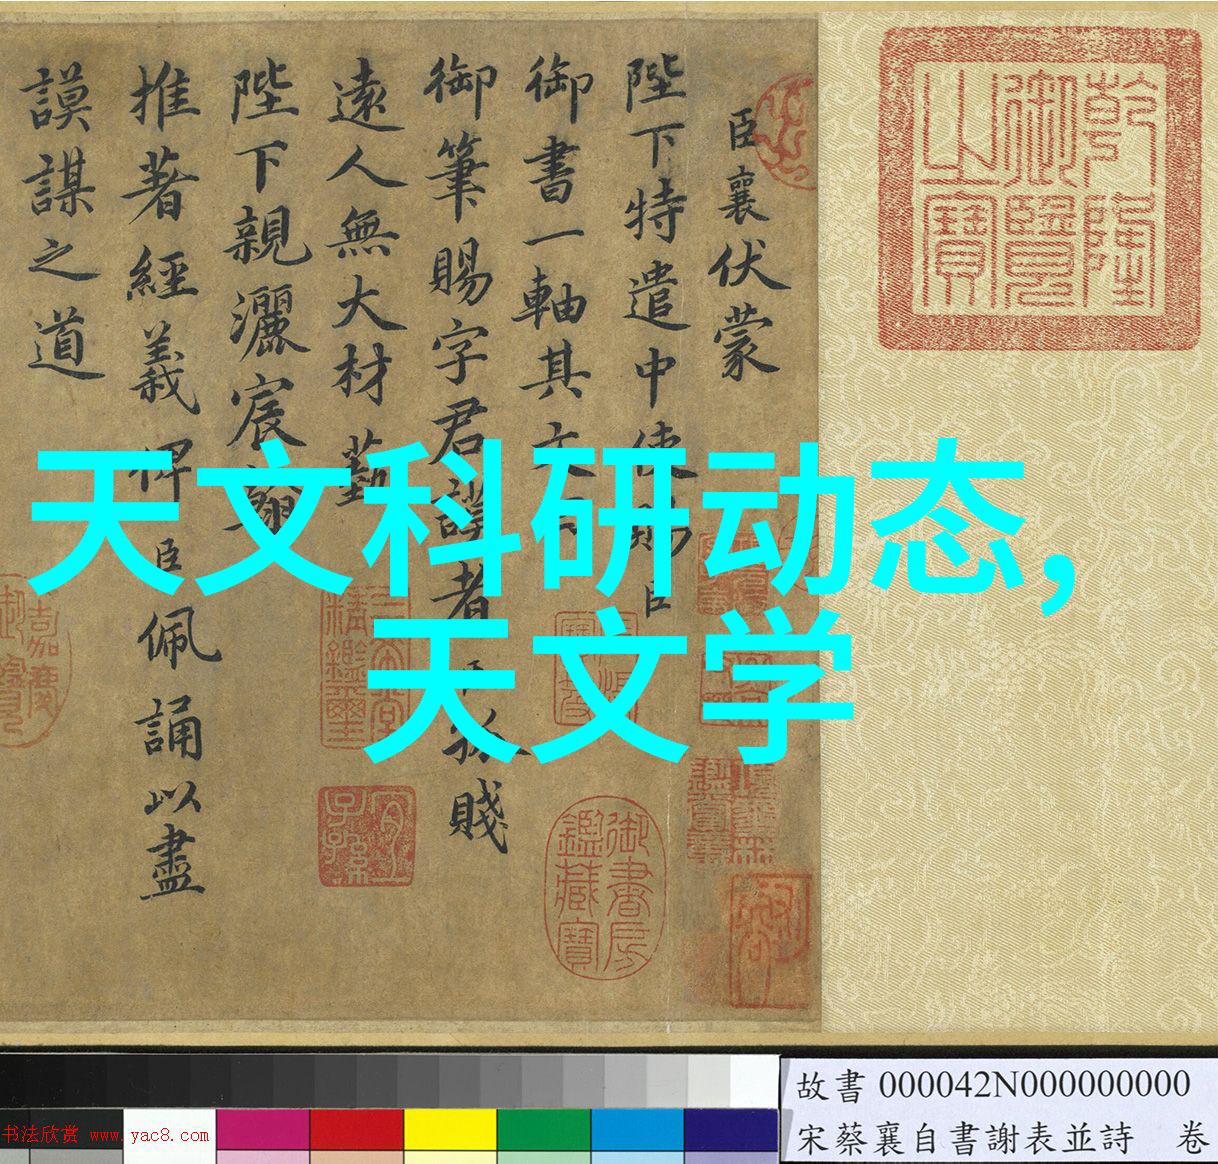 乾隆
御覽
之寶
臣襄伏蒙
陛下特遣中使賜臣
御書一軸其文
御筆賜字君謨者臣孤賤
遠人無大材藝勤
陛下親灑宸翰
推著經義俾臣佩誦以盡
謨謀之道
天文科研动态,
天文学
御書房
鑑藏寶
嘉慶
御覽
三希堂
精鑑璽
宜
子孫
故書 000042N000000000
宋蔡襄自書謝表並詩 卷
书法欣赏 www.yac8.com